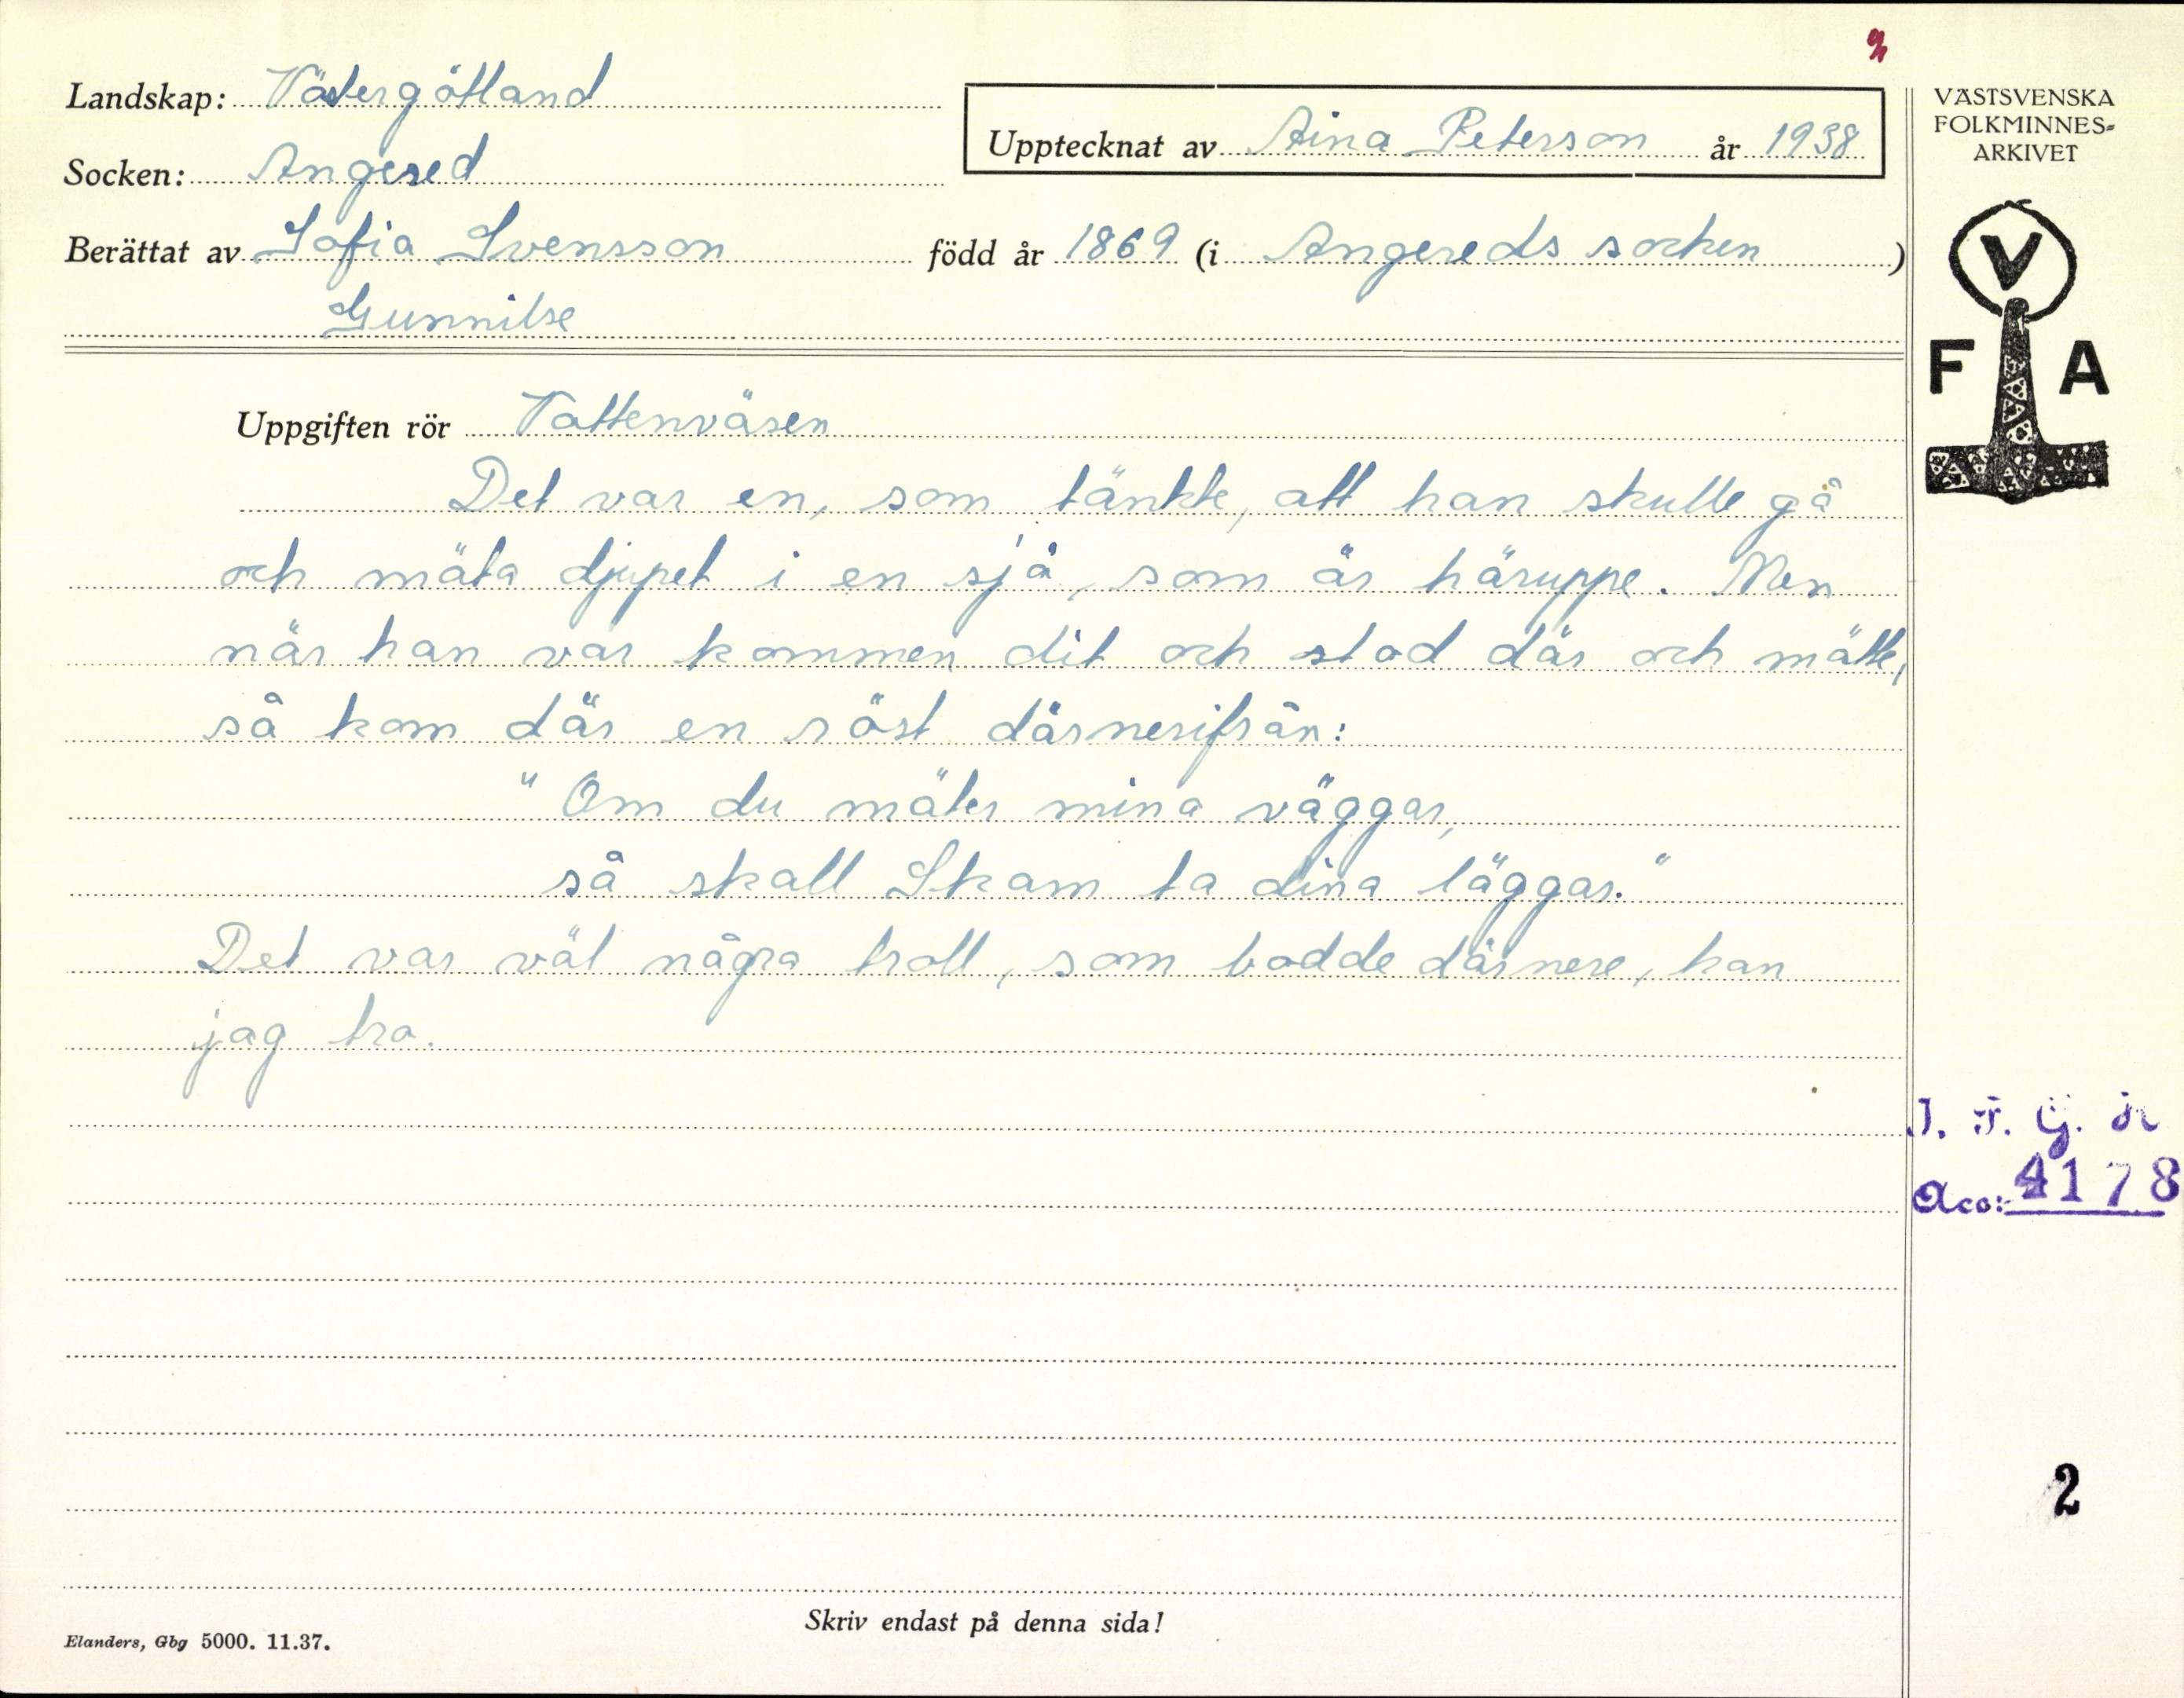 Landskap: Västergötland
Socken: Angered
Berättat av Sofia Svensson född år 1869 (i Angereds socken)
Gunnilse
Upptecknat av Aina Peterson år 1938
VÄSTSVENSKA
FOLKMINNES-
ARKIVET
V
F A
Uppgiften rör Vattenväsen
Det var en, som tänkte, att han skulle gå
och mäta djupet i en sjö, som är häruppe. Men
när han var kommen dit och stod där och mätte,
så kom där en röst därnerifrån:
"Om du mäter mina väggar,
så skall Skam ta dina läggar."
Det var väl några troll, som bodde därnere, kan
jag tro.
I. F. G. H
Acc: 4178
2
Skriv endast på denna sida!
Elanders, Gbg 5000. 11.37.